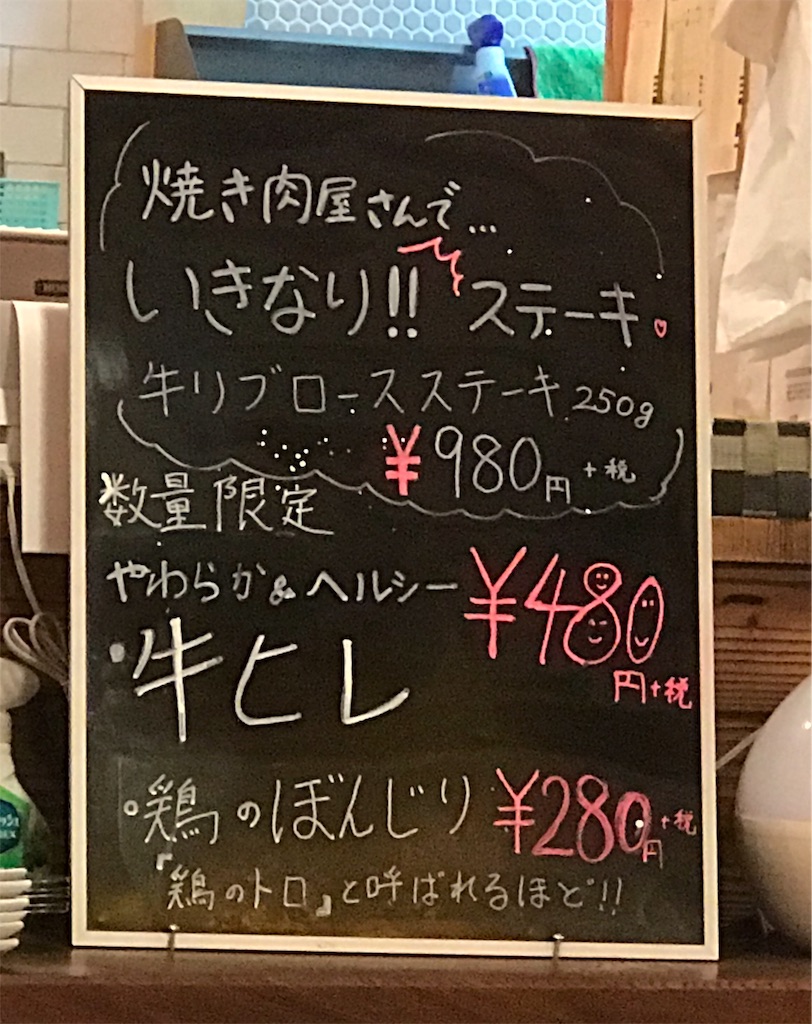 焼き肉屋さんで...
いきなり!! ステーキ
牛リブロースステーキ 250g
¥980円 +税
数量限定
やわらか&ヘルシー ¥480
円+税
・牛ヒレ
・鶏のぼんじり ¥280円+税
『鶏のトロ』と呼ばれるほど!!